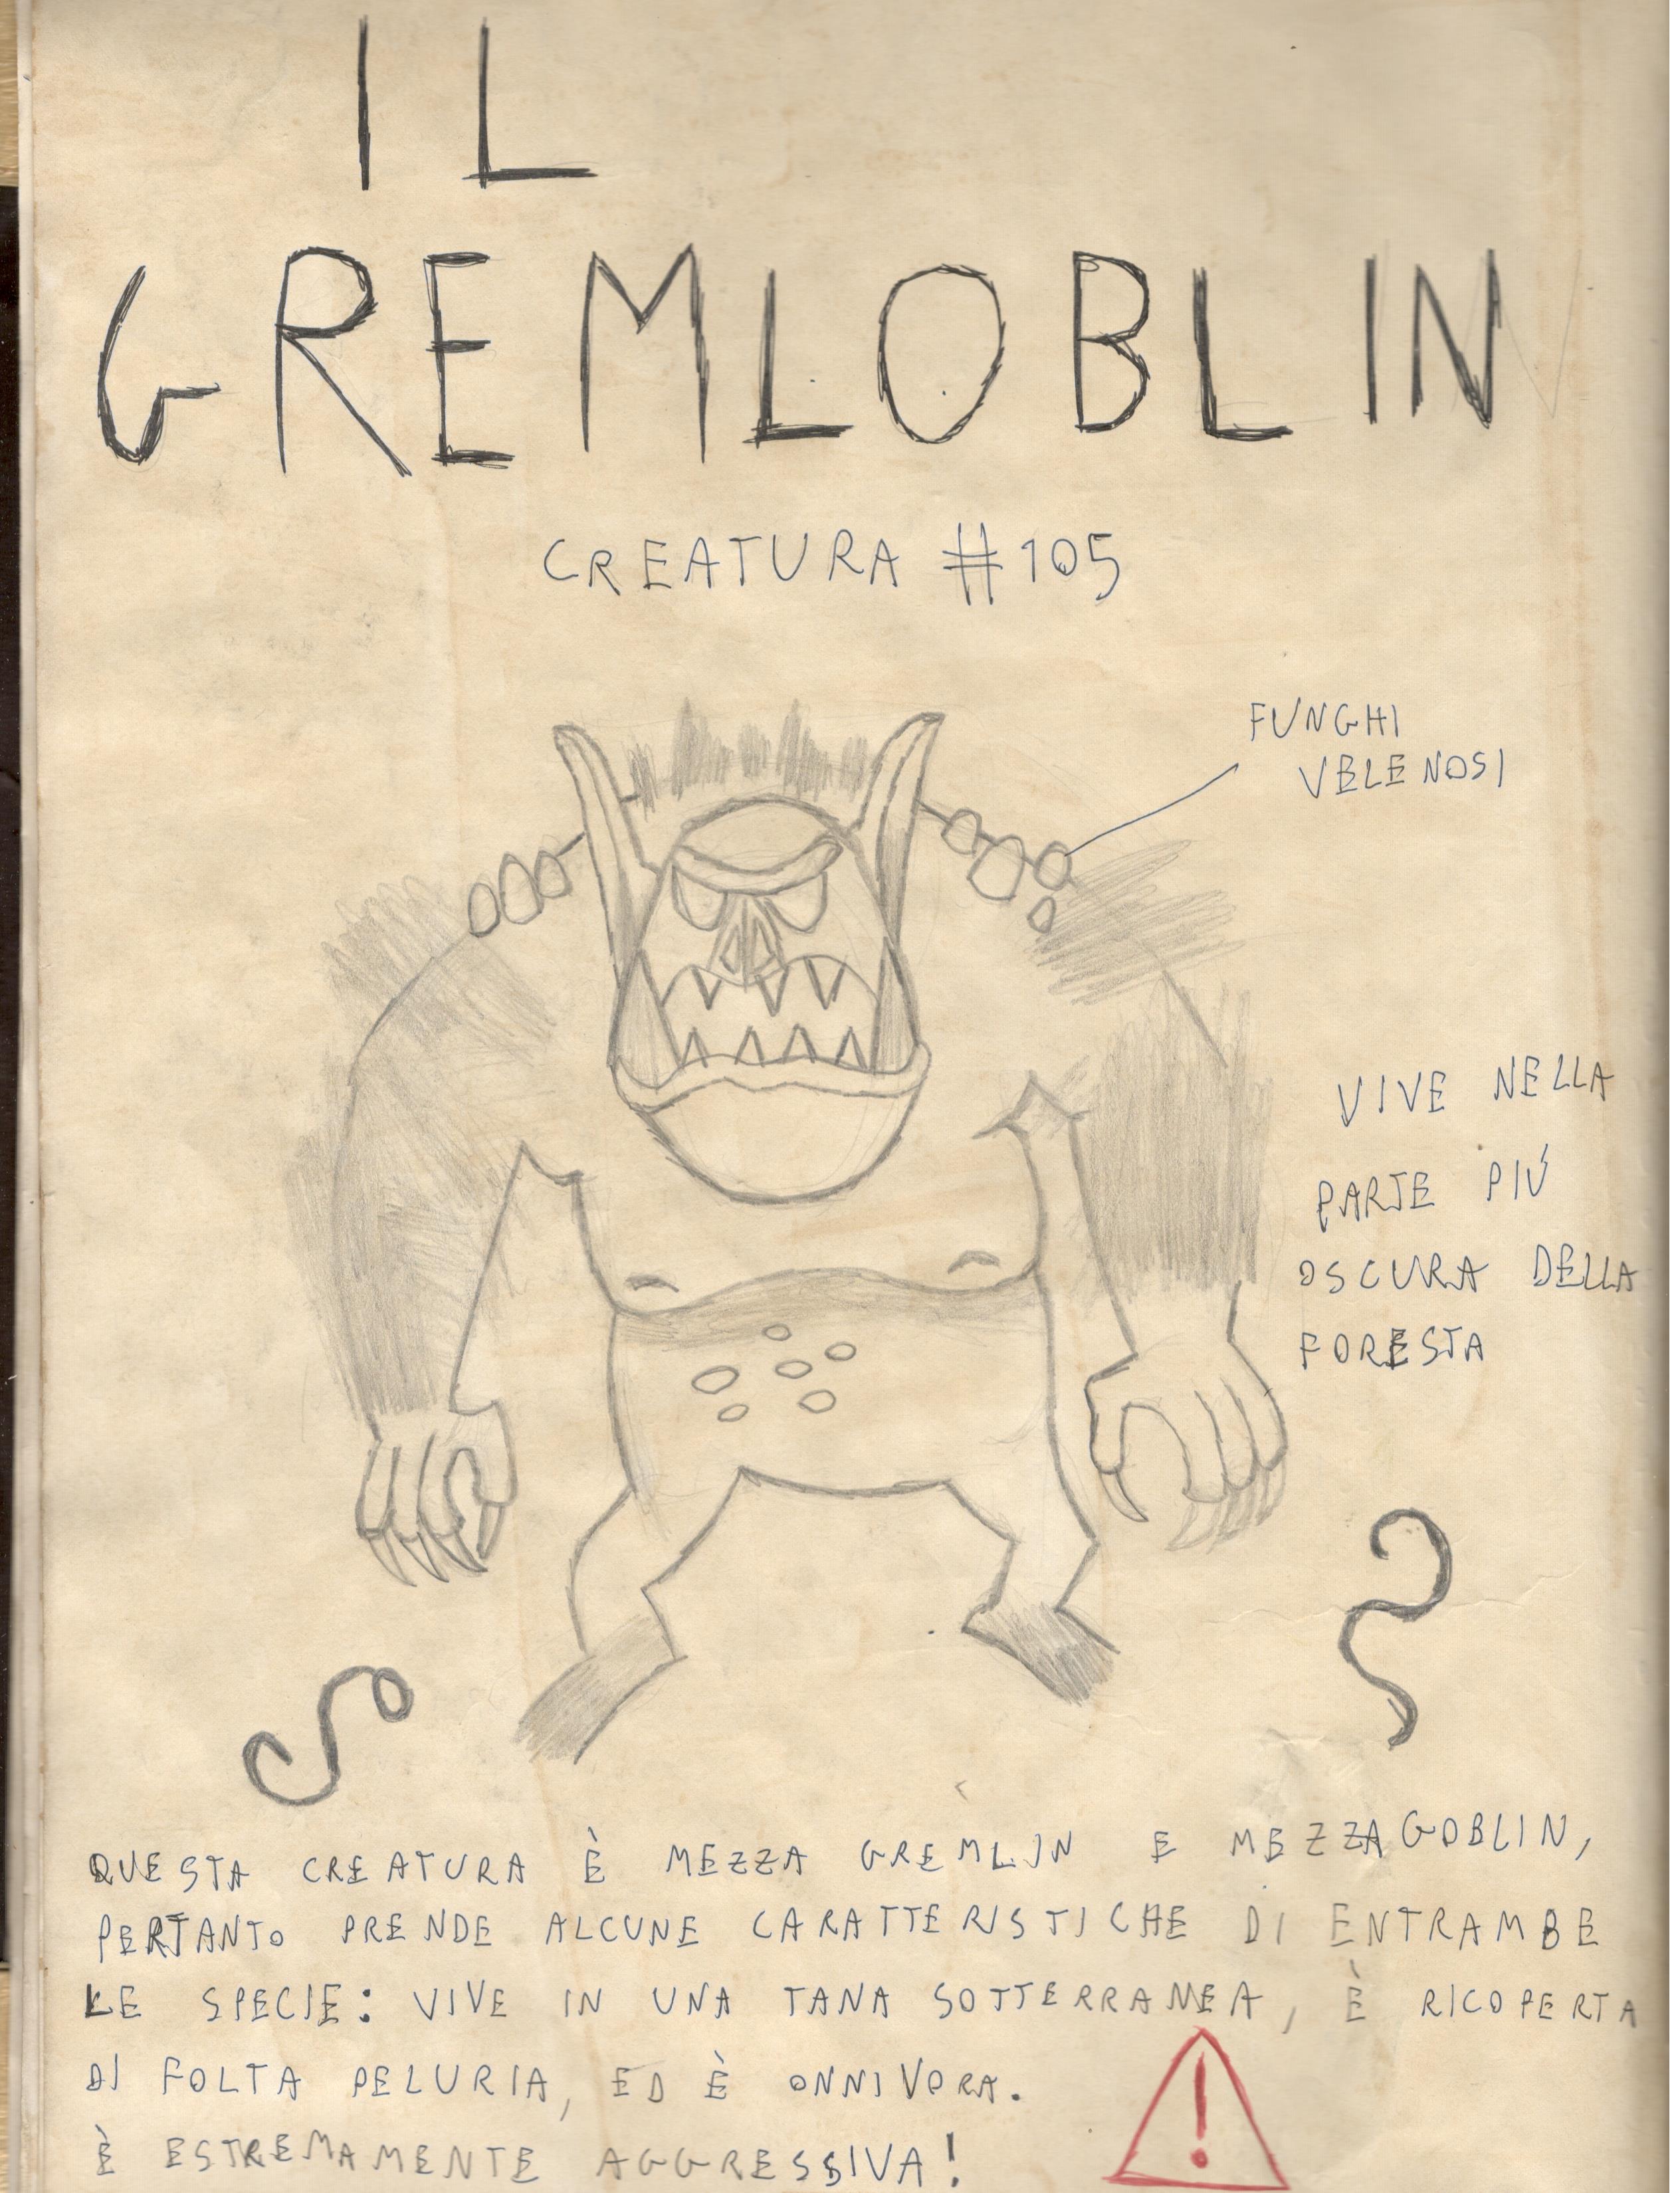 IL
GREMLOBLIN
CREATURA #105
FUNGHI
VELENOSI
VIVE NELLA
PARTE PIÚ
OSCURA DELLA
FORESTA
QUESTA CREATURA È MEZZA GREMLIN E MEZZA GOBLIN,
PERTANTO PRENDE ALCUNE CARATTERISTICHE DI ENTRAMBE
LE SPECIE: VIVE IN UNA TANA SOTTERRANEA, È RICOPERTA
DI FOLTA PELURIA, ED È ONNIVORA.
È ESTREMAMENTE AGGRESSIVA!
!